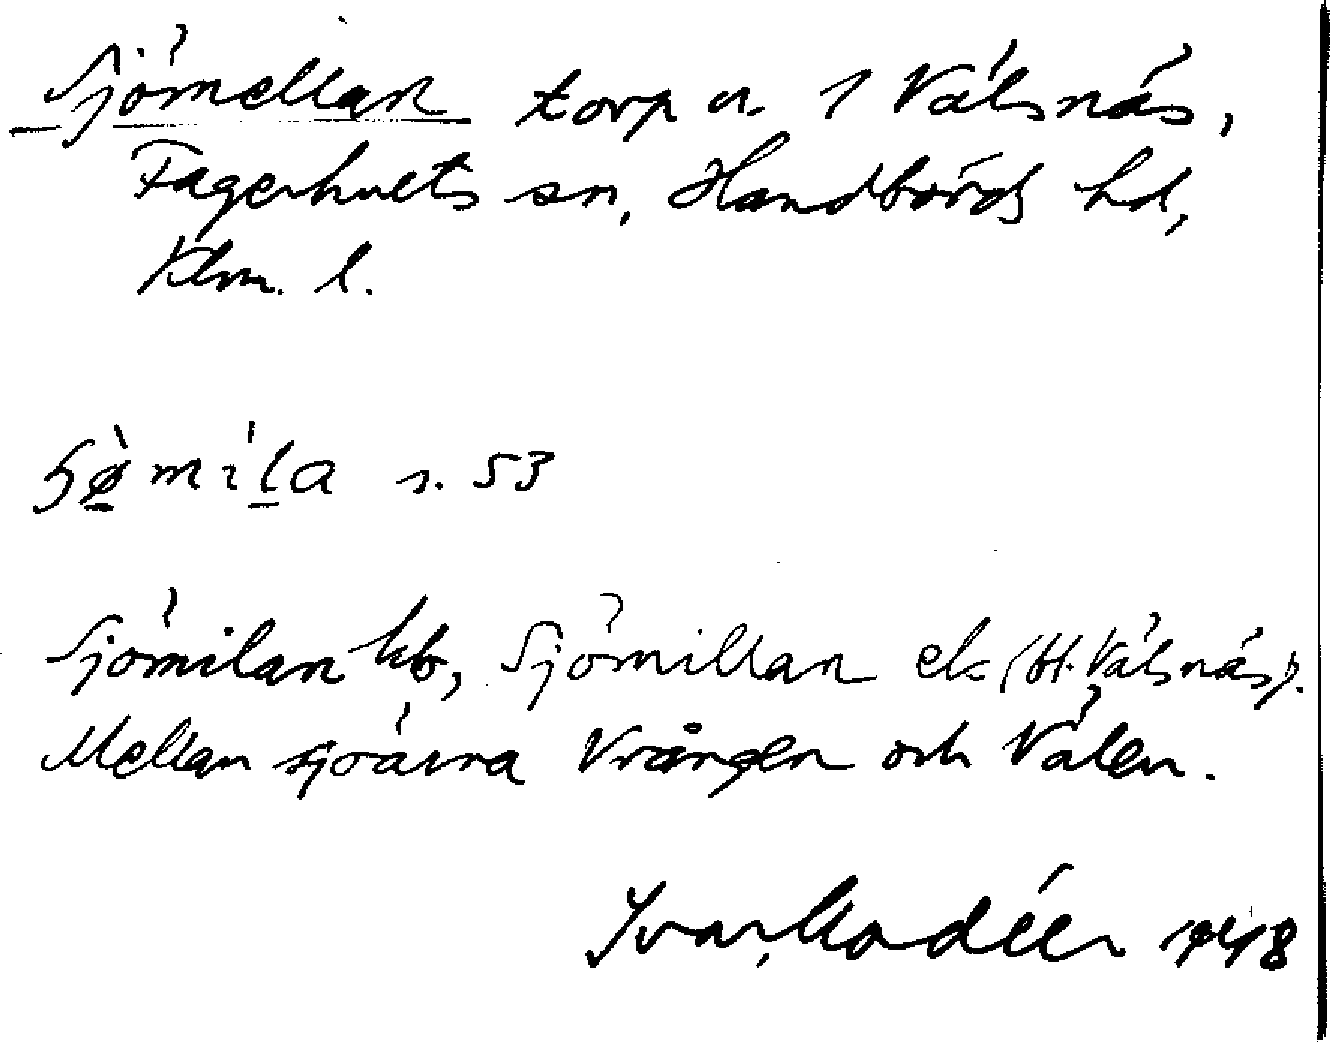 Sjömellan torp u. 1 Välsnäs,
Fagerhults sn, Handbörds hd,
Klm. l.
s. 53
Sjömilan kb, Sjömillan ek (H. Välsnäs).
Mellan sjöarna Vrången och Välen.
Ivar Modéer 1948